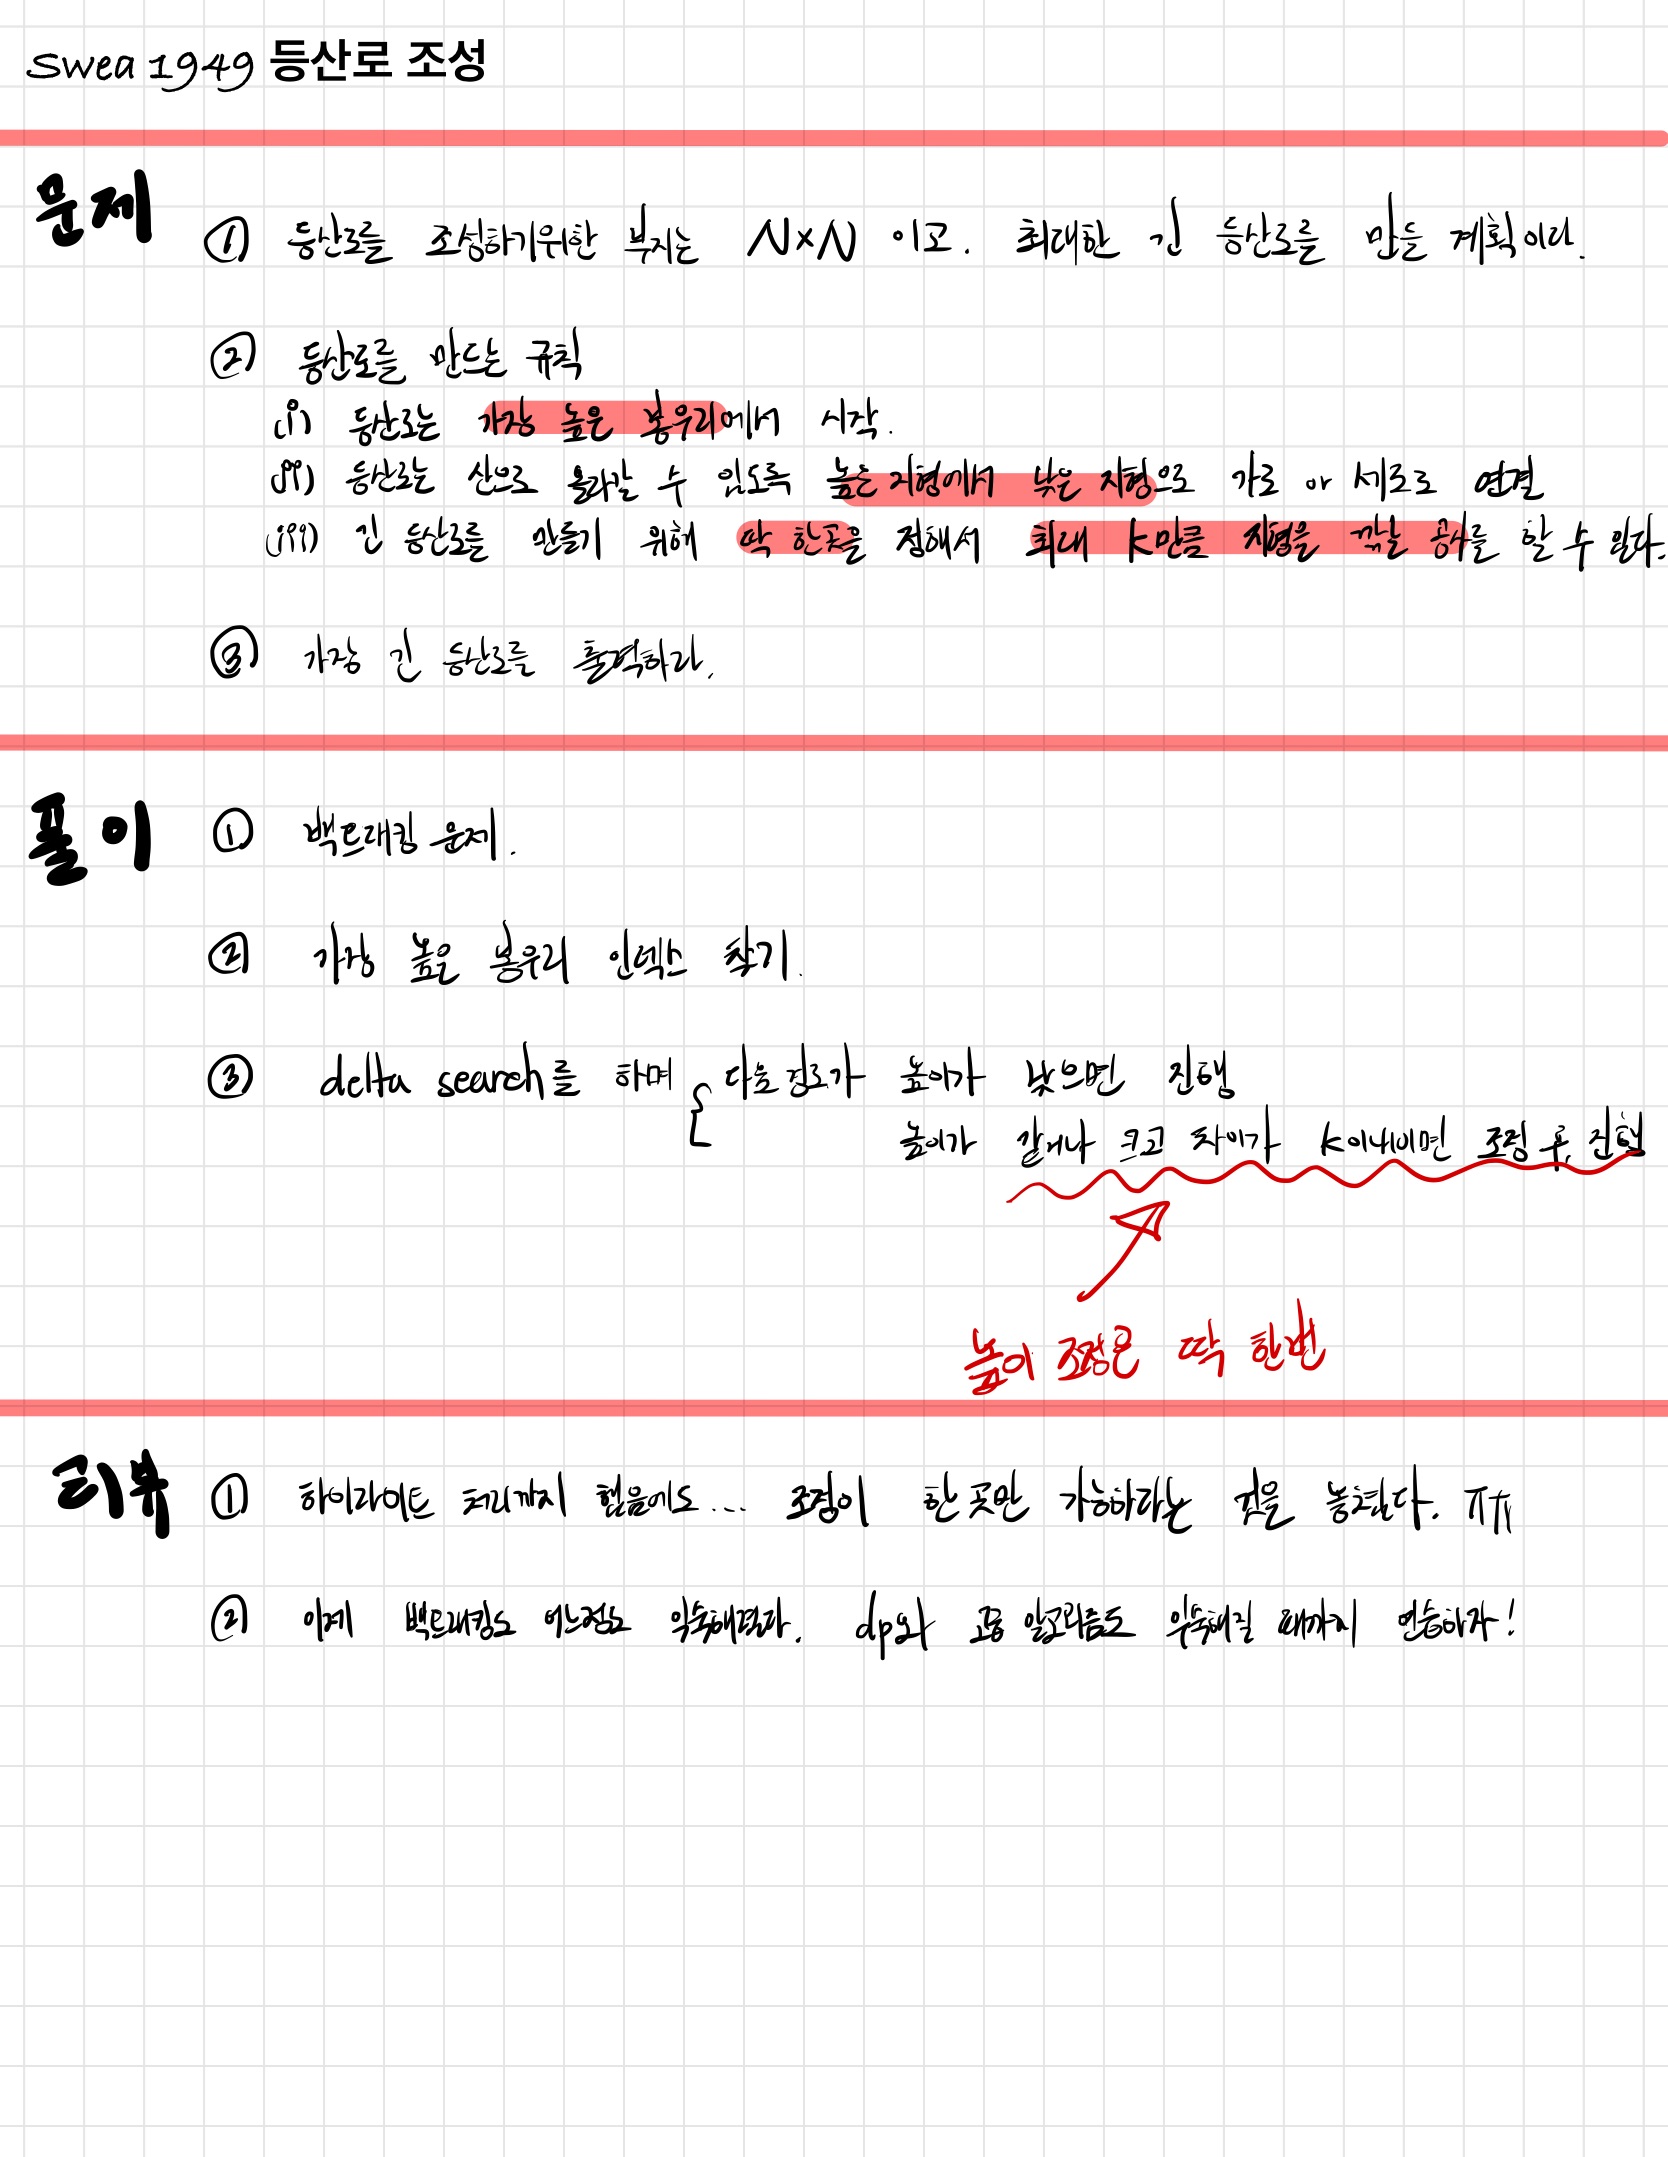 swea 1949 등산로 조성
문제
① 등산로를 조성하기위한 부지는 N×N 이고. 최대한 긴 등산로를 만들 계획이다.
② 등산로를 만드는 규칙
(i) 등산로는 가장 높은 봉우리에서 시작.
(ii) 등산로는 산으로 올라갈 수 있도록 높은 지형에서 낮은 지형으로 가로 or 세로로 연결
(iii) 긴 등산로를 만들기 위해 딱 한곳을 정해서 최대 K만큼 지형을 깎는 공사를 할 수 있다.
③ 가장 긴 등산로를 출력하라.
풀이
① 백트래킹 문제.
② 가장 높은 봉우리 인덱스 찾기.
③ delta search를 하며 { 다음경로가 높이가 낮으면 진행
높이가 같거나 크고 차이가 K이내이면 조정 후, 진행
높이 조정은 딱 한번
리뷰
① 하이라이트 처리까지 했음에도... 조정이 한 곳만 가능하다는 것을 놓쳤다. ㅠㅠ
② 이제 백트래킹도 어느정도 익숙해졌다. dp와 고급 알고리즘도 익숙해질 때까지 연습하자!